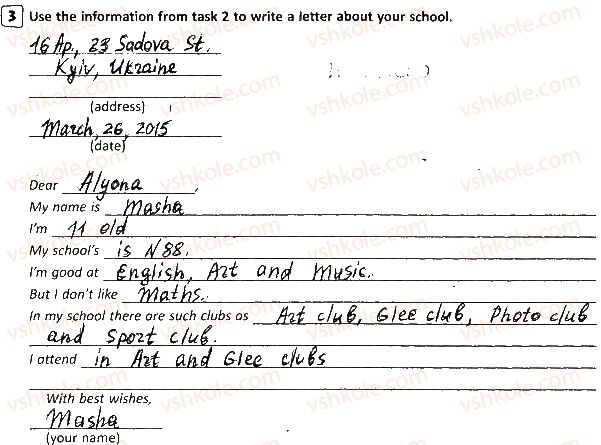 3 Use the information from task 2 to write a letter about your school.
16 Ap., 23 Sadova St.
Kyiv, Ukraine
(address)
March, 26, 2015
(date)
Dear Alyona,
My name is Masha
I'm 11 old
My school's is N88.
I'm good at English, Art and Music.
But I don't like Maths.
In my school there are such clubs as Art club, Glee club, Photo club
and Sport club.
I attend in Art and Glee clubs
With best wishes,
Masha
(your name)
vshkole.com